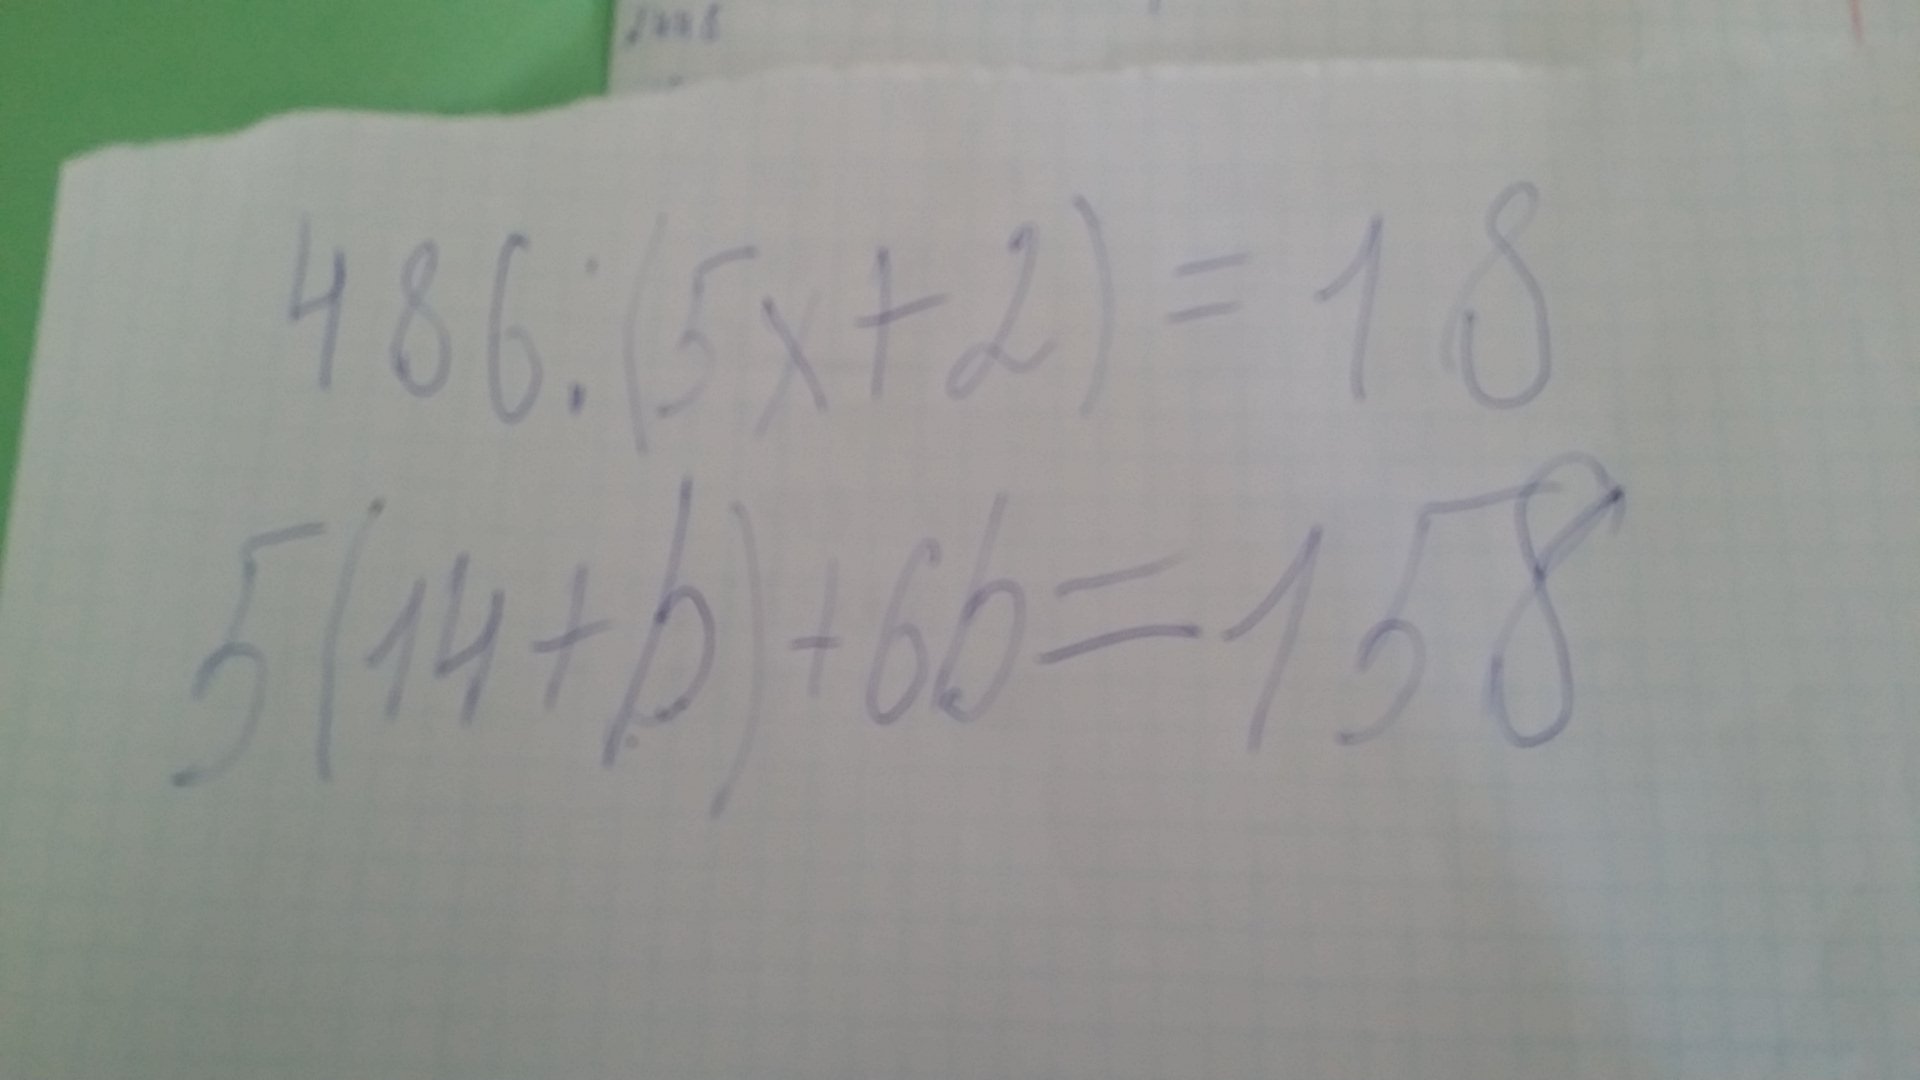 486:(5x+2)=18
5(14+b)+6b=158